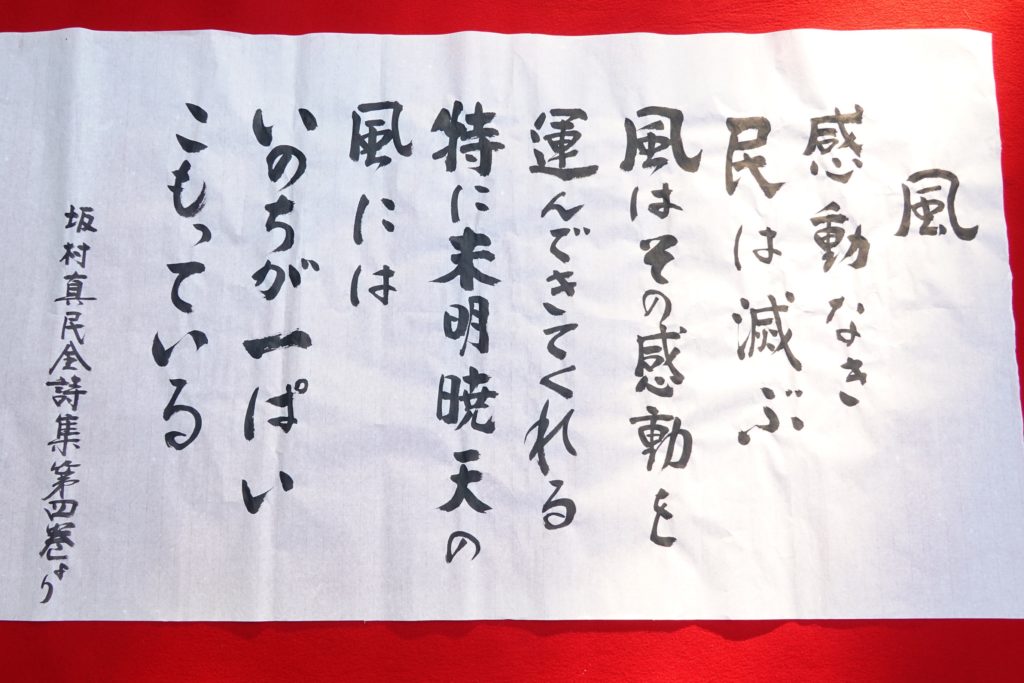 風
感動なき
民は滅ぶ
風はその感動を
運んできてくれる
特に未明暁天の
風には
いのちが一ぱい
こもっている
坂村真民全詩集第四巻より